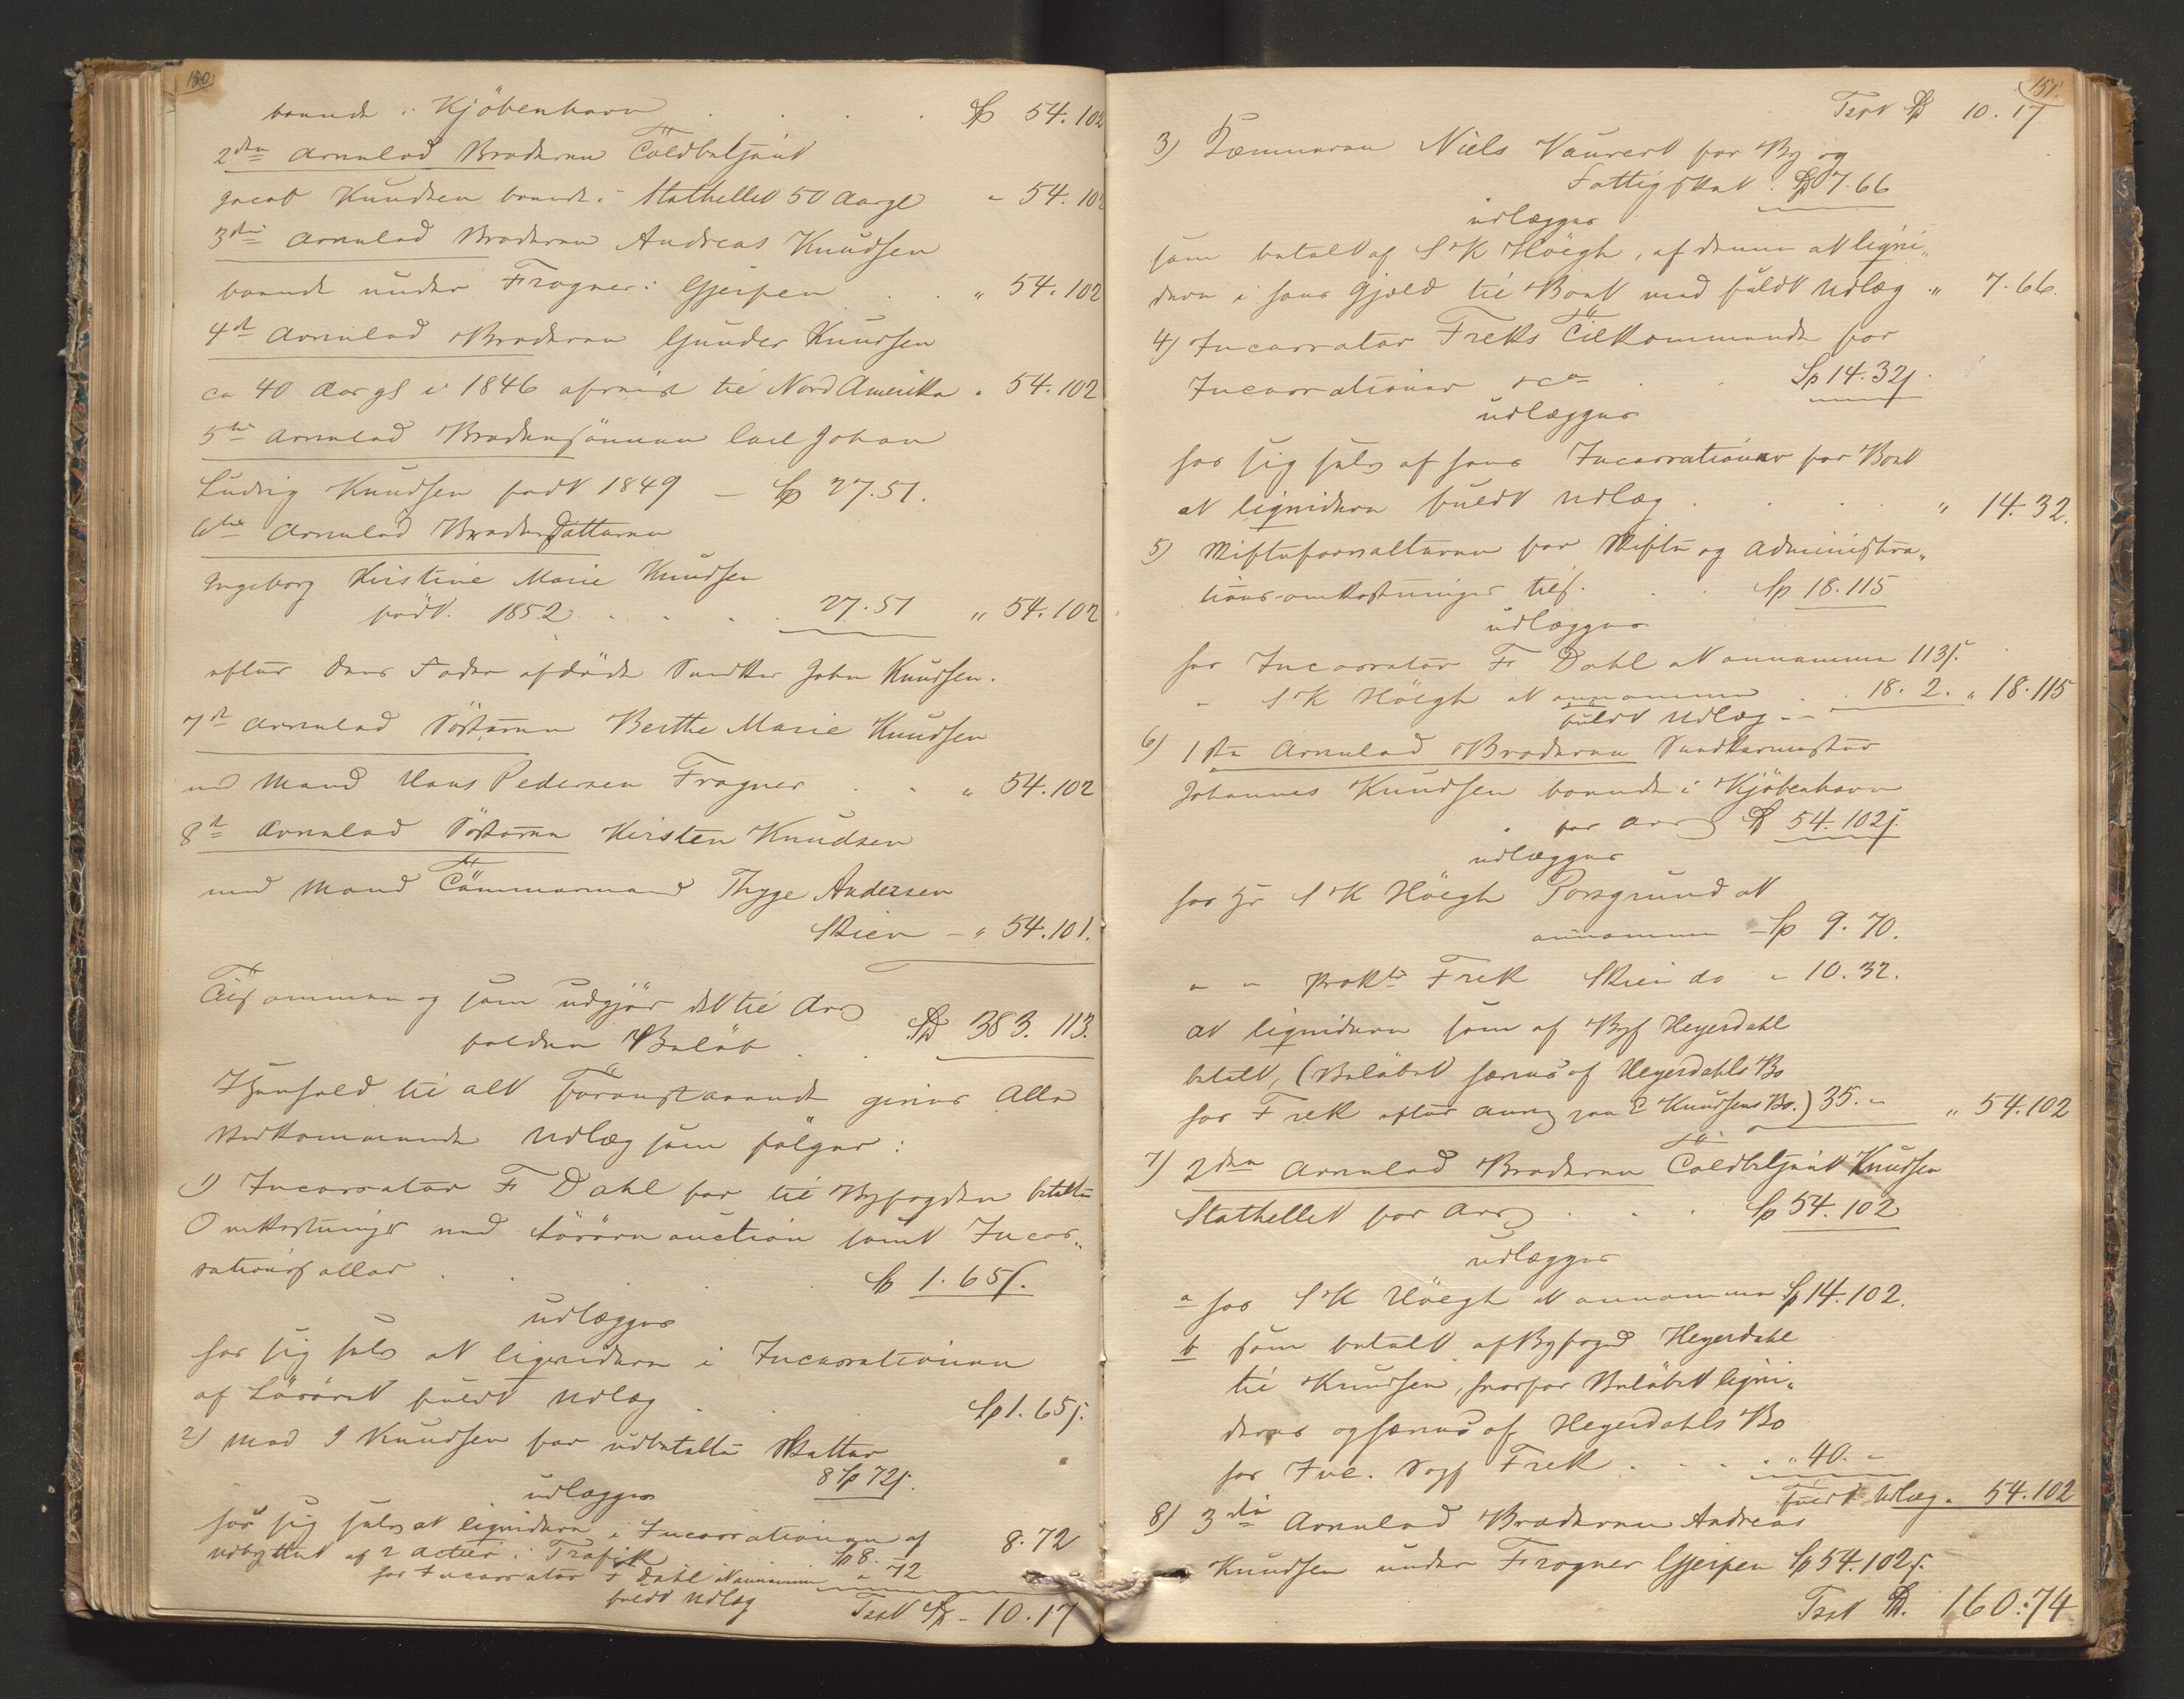 150.
boende i Kjöbenhavn . . . . Sp 54.102
2den Arvelod Broderen Toldbetjent
Jacob Knudsen boende i Stathelled 50 Aar gl " 54.102
3die Arvelod Broderen Andreas Knudsen
boende under Frogner i Gjerpen . . " 54.102
4de Arvelod Broderen Gunder Knudsen
ca 40 Aar gl i 1846 afreist til Nord Amerika " 54.102
5te Arvelod Brodersönnen Carl Johan
Ludvig Knudsen född 1849 – Sp 27.51.
6te Arvelod Broderdatteren
Ingeborg Kirstine Marie Knudsen
född 1852 . . . . 27.51 " 54.102
efter deres Fader afdöde Snedker John Knudsen.
7de Arvelod Söstere Berthe Marie Knudsen
med Mand Hans Pedersen Frogner . . " 54.102
8de Arvelod Söstere Kirsten Knudsen
med Mand Tömmermand Thyge Andersen
Skien – " 54.101.
Tilsammen og som udgjör det til Arv
faldne Belöb . . Sp 383.113.
I Henhold til alt Foranstaaende gives Alle
Vedkommende Udlæg som fölger:
1) Incassator F Dahl for til Byfogden betalte
Omkostninger med Lösöre auction samt Incas„
sationssallar . . . . Sp 1.65ß.
udlægges
hos sig selv at liqvidere i Incassationen
af Lösöret fuldt Udlæg . . Sp 1.65ß.
2) Mad J Knudsen for udbetalte Skatter
8 Sp 72ß.
udlægges
hos sig selv at liqvidere i Incassationen af
udbyttet af 2 Actier i Trafik Sp 8. – 8.72
hos Incassator F Dahl at annamme " 72
fuldt Udlæg Trsp Sp – 10.17
151.
Trsp Sp 10.17
3) Kæmneren Niels Vauvert for By og
Fattigskat . Sp 7.66
udlægges
som betalt af S K Höegh, af denne at liqvi„
dere i hans Gjæld til Boet med fuldt Udlæg " 7.66.
4) Incassator Freks Tilkommende for
Incassationer &ca . . Sp 14.32ß
udlægges
hos sig selv af hans Incassationer for Boet
at liqvidere fuldt Udlæg . . . . " 14.32.
5) Skifteforvalteren for Skifte og Administra„
tions-omkostninger tils. . . Sp 18.115
udlægges
hos Incassator F Dahl at annamme 113ß.
" S K Höegh at annamme . . 18.2. " 18.115
fuldt Udlæg –
6) 1ste Arvelod Broderen Snedkermester
Johannes Knudsen boende i Kjöbenhavn
for Arv Sp 54.102ß
udlægges
hos Hr S K Höegh Porsgrund at
annamme – Sp 9.70.
" " Prokr Frek Skien do " 10.32.
at liqvidere som af Byf Heyerdahl
betalt, (Belöbet hæves af Heyerdahls Bo
hos Frek efter Anv. paa E Knudsens Bo.) 35. – " 54.102
7) 2den Arvelod Broderen Toldbetjent Knudsen
Stathelled for Arv . . . Sp 54.102
udlægges
a hos S K Höegh at annamme Sp 14.102.
b som betalt af Byfoged Heyerdahl
til Knudsen, hvorfor Belöbet liqvi„
deres og hæves af Heyerdahls Bo
hos Inc. Sagf Frek . . . . " 40. –
fuldt Udlæg " 54.102
8) 3die Arvelod Broderen Andreas
Knudsen under Frogner Gjerpen Sp 54.102ß.
Trsp Sp. 160.74